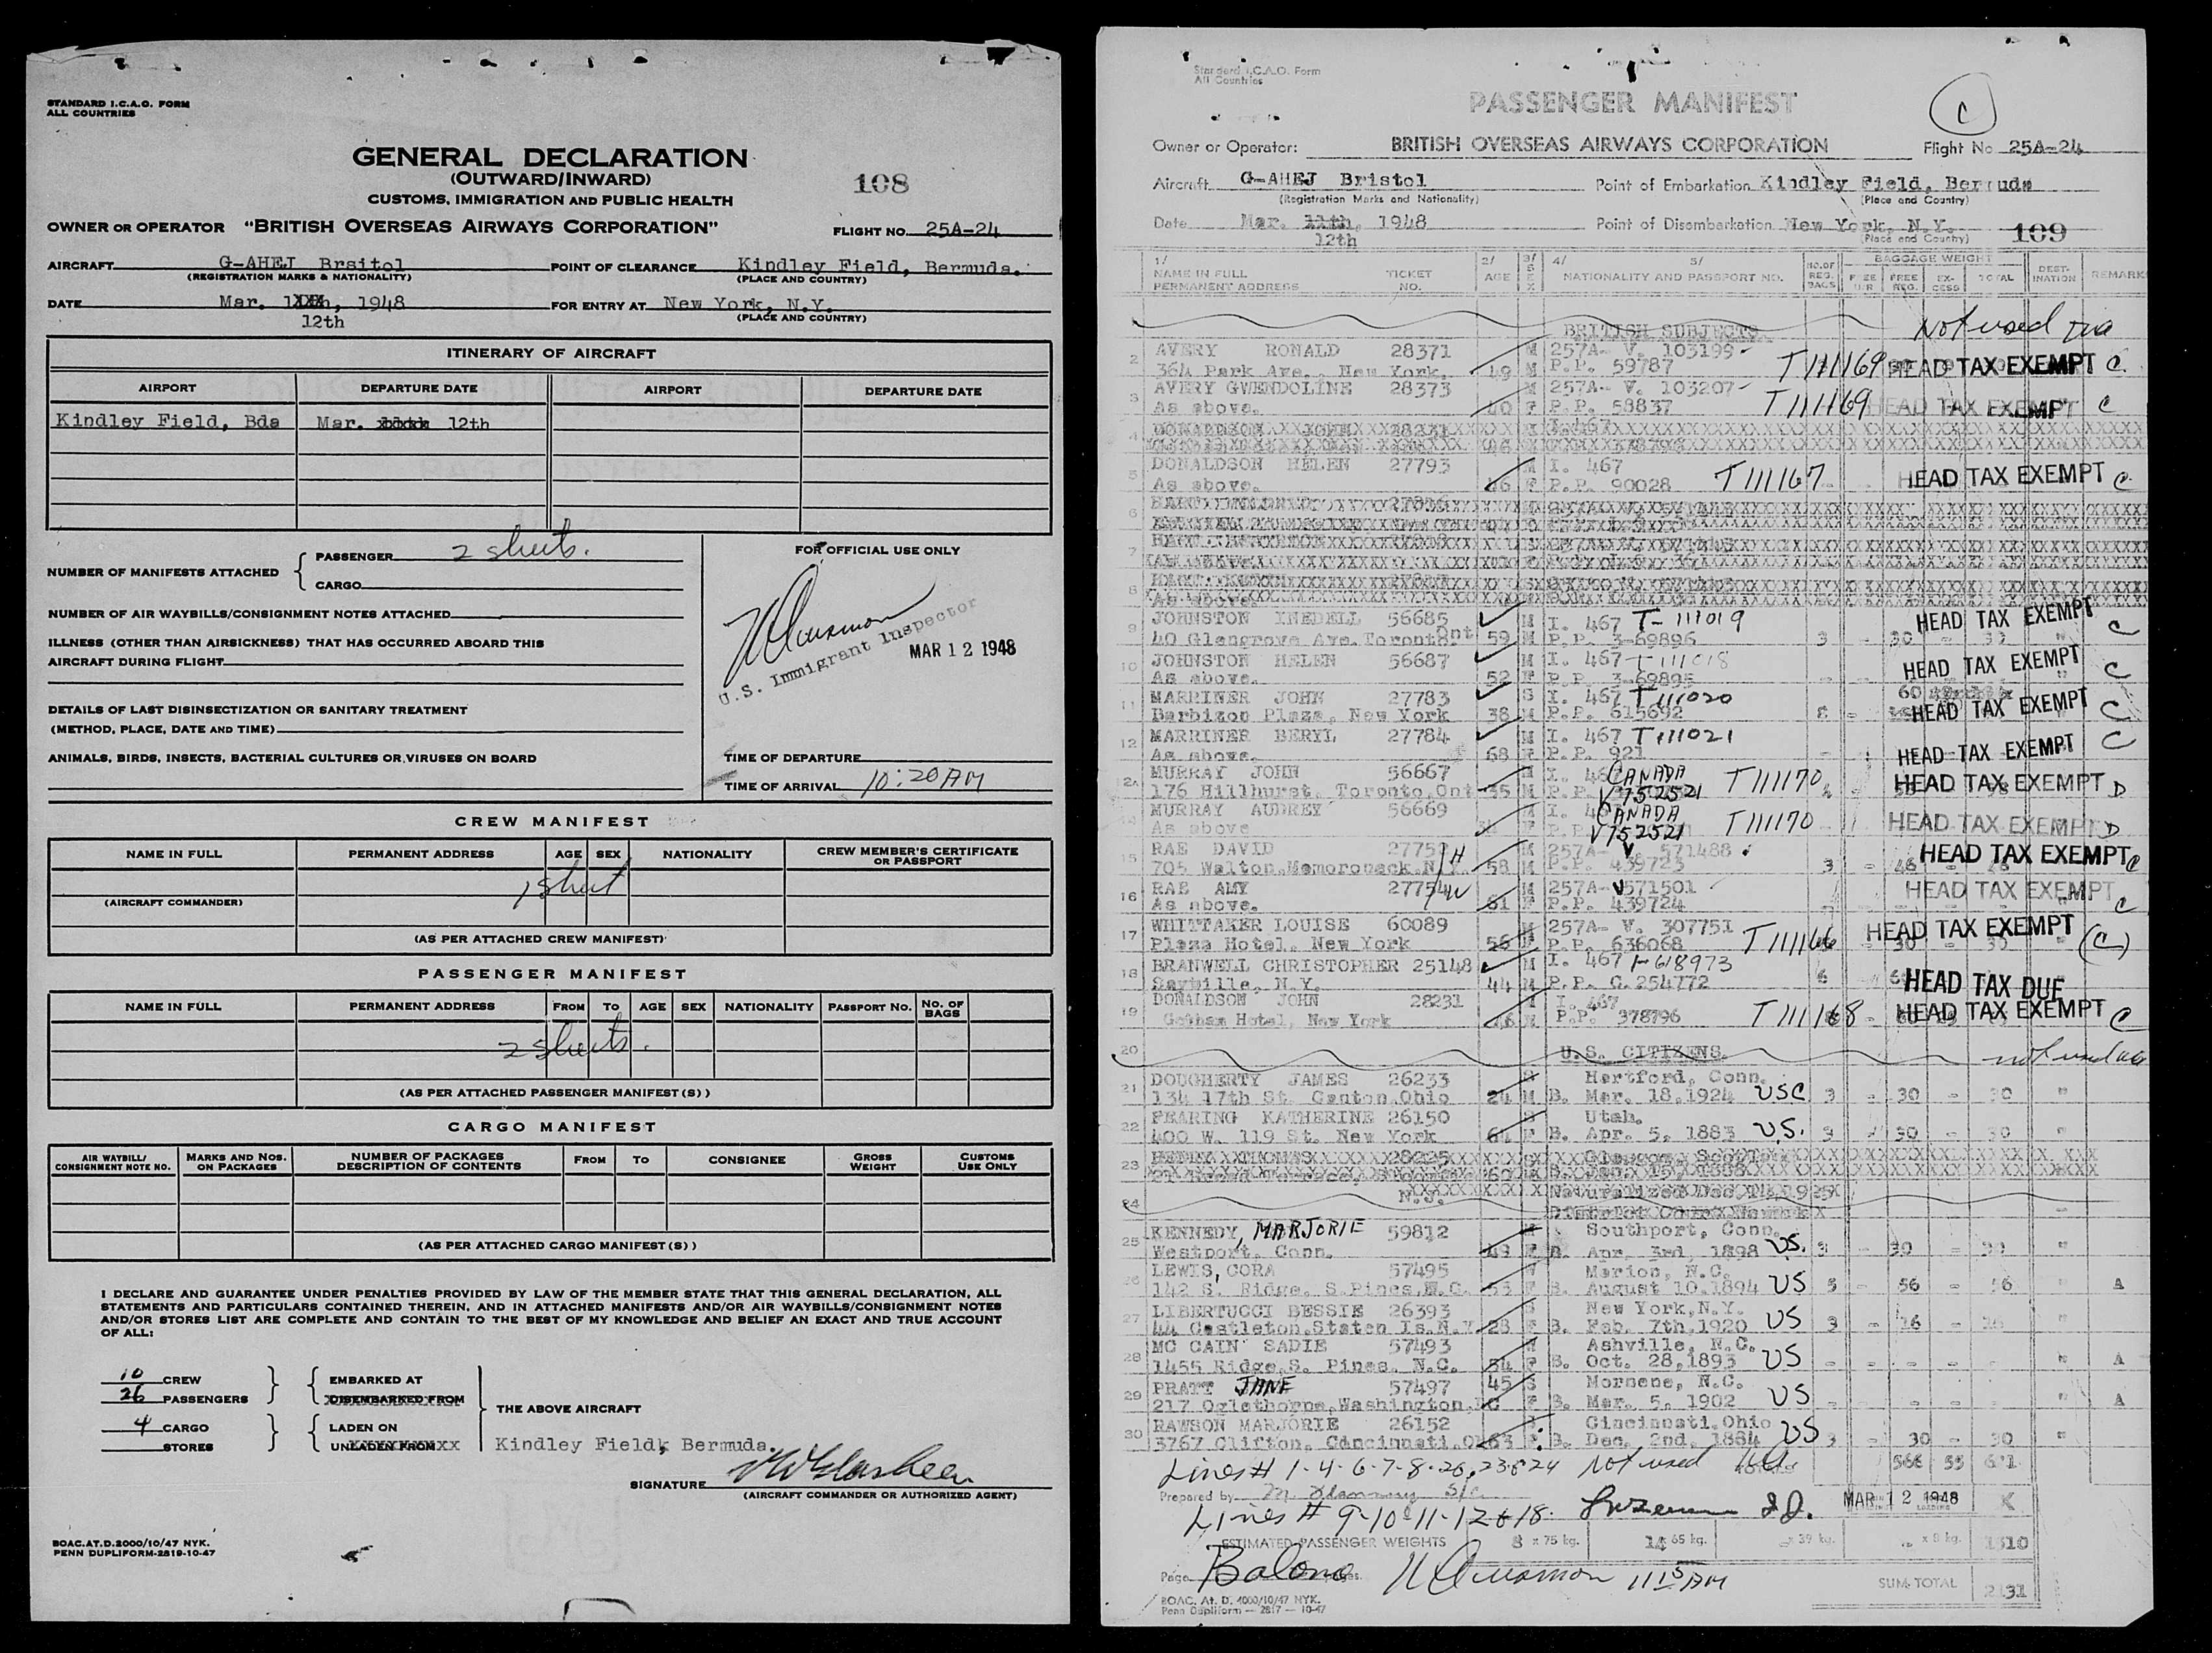 STANDARD I.C.A.O. FORM
ALL COUNTRIES
GENERAL DECLARATION
(OUTWARD/INWARD)
108
CUSTOMS, IMMIGRATION AND PUBLIC HEALTH
OWNER OR OPERATOR "BRITISH OVERSEAS AIRWAYS CORPORATION" FLIGHT NO. 25A-24
AIRCRAFT G-AHEJ Brsitol POINT OF CLEARANCE Kindley Field, Bermuda.
(REGISTRATION MARKS & NATIONALITY) (PLACE AND COUNTRY)
DATE Mar. 12th, 1948 FOR ENTRY AT New York, N.Y.
(PLACE AND COUNTRY)
ITINERARY OF AIRCRAFT
AIRPORT DEPARTURE DATE AIRPORT DEPARTURE DATE
Kindley Field, Bda Mar. 12th
NUMBER OF MANIFESTS ATTACHED
PASSENGER 2 sheets.
CARGO
NUMBER OF AIR WAYBILLS/CONSIGNMENT NOTES ATTACHED
ILLNESS (OTHER THAN AIRSICKNESS) THAT HAS OCCURRED ABOARD THIS
AIRCRAFT DURING FLIGHT
DETAILS OF LAST DISINSECTIZATION OR SANITARY TREATMENT
(METHOD, PLACE, DATE AND TIME)
ANIMALS, BIRDS, INSECTS, BACTERIAL CULTURES OR VIRUSES ON BOARD
FOR OFFICIAL USE ONLY
U.S. Immigrant Inspector
MAR 12 1948
TIME OF DEPARTURE
TIME OF ARRIVAL 10:20 AM
CREW MANIFEST
NAME IN FULL PERMANENT ADDRESS AGE SEX NATIONALITY CREW MEMBER'S CERTIFICATE OR PASSPORT
1 sheet
(AIRCRAFT COMMANDER)
(AS PER ATTACHED CREW MANIFEST)
PASSENGER MANIFEST
NAME IN FULL PERMANENT ADDRESS FROM TO AGE SEX NATIONALITY PASSPORT NO. NO. OF BAGS
2 sheets.
(AS PER ATTACHED PASSENGER MANIFEST(S))
CARGO MANIFEST
AIR WAYBILL/ CONSIGNMENT NOTE NO. MARKS AND NOS. ON PACKAGES NUMBER OF PACKAGES DESCRIPTION OF CONTENTS FROM TO CONSIGNEE GROSS WEIGHT CUSTOMS USE ONLY
(AS PER ATTACHED CARGO MANIFEST(S))
I DECLARE AND GUARANTEE UNDER PENALTIES PROVIDED BY LAW OF THE MEMBER STATE THAT THIS GENERAL DECLARATION, ALL
STATEMENTS AND PARTICULARS CONTAINED THEREIN, AND IN ATTACHED MANIFESTS AND/OR AIR WAYBILLS/CONSIGNMENT NOTES
AND/OR STORES LIST ARE COMPLETE AND CONTAIN TO THE BEST OF MY KNOWLEDGE AND BELIEF AN EXACT AND TRUE ACCOUNT
OF ALL:
10 CREW EMBARKED AT
26 PASSENGERS DISEMBARKED FROM
THE ABOVE AIRCRAFT
4 CARGO LADEN ON
STORES UNLADEN FROM Kindley Field, Bermuda.
SIGNATURE
(AIRCRAFT COMMANDER OR AUTHORIZED AGENT)
BOAC.AT.D.2000/10/47 NYK.
PENN DUPLIFORM-2819-10-47
Standard I.C.A.O. Form
All Countries
PASSENGER MANIFEST
C
Owner or Operator: BRITISH OVERSEAS AIRWAYS CORPORATION Flight No 25A-24
Aircraft G-AHEJ Bristol Point of Embarkation Kindley Field, Bermuda
(Registration Marks and Nationality) (Place and Country)
Date Mar. 11th, 1948 Point of Disembarkation New York, N.Y.
12th (Place and Country) 109
1/ NAME IN FULL PERMANENT ADDRESS TICKET NO. 2/ AGE 3/ SEX 4/ 5/ NATIONALITY AND PASSPORT NO. NO. OF REG. BAGS BAGGAGE WEIGHT FREE REG. EXCESS TOTAL DESTINATION REMARK
BRITISH SUBJECTS Not used
2 AVERY RONALD 28371 M 257A- V. 103199
364 Park Ave., New York. 49 M P.P. 59787 T 111169 HEAD TAX EXEMPT C
3 AVERY GWENDOLINE 28373 M 257A- V. 103207
As above. 40 F P.P. 58837 T 111169 HEAD TAX EXEMPT C
4 DONALDSON JOHN 28231 I. 467
46 378796
5 DONALDSON HELEN 27793 M I. 467
As above. 46 F P.P. 90028 T 111167 HEAD TAX EXEMPT C
6
7
8
As above.
9 JOHNSTON INEDELL 56685 M I. 467 T-111019 HEAD TAX EXEMPT C
40 Glengrove Ave. Toronto Ont 59 M P.P. 3-69896 3 - 30 - 30 "
10 JOHNSTON HELEN 56687 M I. 467 T-111018 HEAD TAX EXEMPT C
As above. 52 F P.P. 3-69895
11 MARRINER JOHN 27783 S I. 467 T 111020 60
Barbizon Plaza, New York 38 M P.P. 615692 8 - HEAD TAX EXEMPT C
12 MARRINER BERYL 27784 M I. 467 T 111021
As above. 68 F P.P. 921 HEAD TAX EXEMPT C
12A MURRAY JOHN 56667 M I. 467 CANADA T 111170 HEAD TAX EXEMPT D
176 Hillhurst. Toronto, Ont 35 M P.P. V752521
14 MURRAY AUDREY 56669 I. 467 CANADA T 111170 HEAD TAX EXEMPT D
As above P.P. V752521
15 RAE DAVID 27752 H M 257A- V. 571488 HEAD TAX EXEMPT C
705 Walton, Memoroneck. N.Y. 58 M P.P. 439723 3 - 46 - 46
16 RAE AMY 27754 W M 257A-V571501 HEAD TAX EXEMPT C
As above. 61 F P.P. 439724
17 WHITTAKER LOUISE 60089 257A- V. 307751 HEAD TAX EXEMPT (C)
Plaza Hotel. New York 56 F P.P. 636068 T 111166 - 30 - 30 "
18 BRANWELL CHRISTOPHER 25148 M I. 467 1-618973
Sayville, N.Y. 44 M P.P. C. 254772 6 HEAD TAX DUE
19 DONALDSON JOHN 28231 M I. 467
Gotham Hotel, New York 46 M P.P. 378796 T 111168 HEAD TAX EXEMPT C
20 U.S. CITIZENS not used
21 DOUGHERTY JAMES 26233 S Hertford, Conn.
134 17th St. Canton, Ohio 24 M B. Mar. 18, 1924 USC 3 - 30 - 30 "
22 PEARING KATHERINE 26150 S Utah.
400 W. 119 St. New York 64 F B. Apr. 5, 1883 U.S. 3 30 - 30 "
23 THOMAS 28225 Glasgow, Scotland
N.J. Naturalized Dec. 14, 1925
24 District Court Newark
25 KENNEDY, MARJORIE 59812 Southport, Conn.
Westport, Conn. 49 F B. Apr. 3rd 1898 US. 3 - 30 - 30 "
26 LEWIS, CORA 57495 W Marion, N.C.
142 S. Ridge, S. Pines, N.C. 53 F B. August 10, 1894 US 5 - 56 - 56 A
27 LIBERTUCCI BESSIE 26393 S New York, N.Y.
44 Castleton, Staten Is. N.Y. 28 F B. Feb. 7th, 1920 US 3 - 16 - 16 "
28 MC CAIN SADIE 57493 W Ashville, N.C.
1455 Ridge, S. Pines, N.C. 54 F B. Oct. 28, 1893 US - - - - " A
29 PRATT JANE 57497 45 S Mornene, N.C.
217 Oglethorpe, Washington, DC F B. Mar. 5, 1902 US - - - - " A
30 RAWSON MARJORIE 26152 Cincinnati, Ohio
3767 Clifton, Cincinnati, O 63 F B. Dec. 2nd, 1884 US 3 30 - 30 "
Lines # 1-4-6-7-8-20, 23 & 24 Not used TOTALS 566 55 621
Prepared by
Lines # 9-10-11-12 & 18. MAR 12 1948 K
ESTIMATED PASSENGER WEIGHTS 8 x 75 kg. 14 65 kg. x 39 kg. x 8 kg. 1510
Page Balona 11 15 AM
SUM TOTAL 2131
BOAC. At. D. 4000/10/47 NYK.
Penn Dupliform - 2817 - 10-47